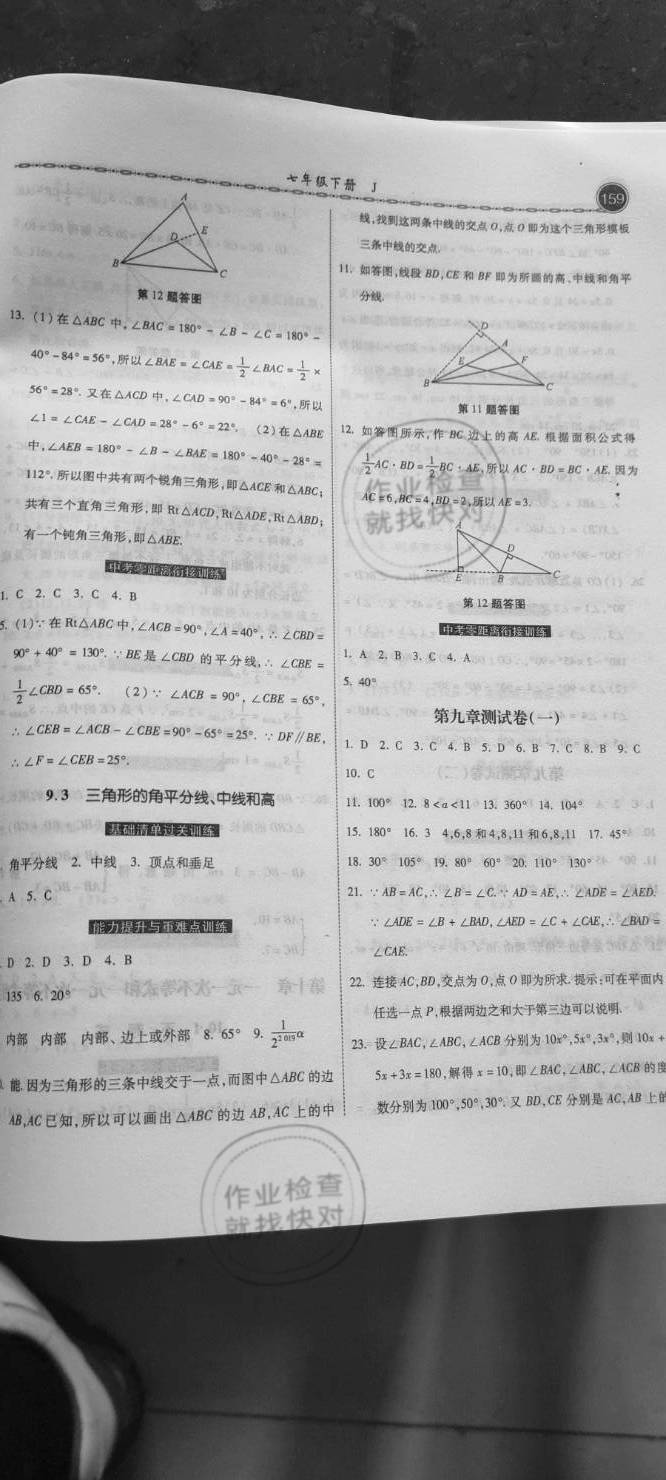 七年级下册 J
159
A
D
E
B
C
第12题答图
13. (1)在△ABC中,∠BAC=180°-∠B-∠C=180°-
40°-84°=56°,所以∠BAE=∠CAE=1/2∠BAC=1/2×
56°=28°.又在△ACD中,∠CAD=90°-84°=6°,所以
∠1=∠CAE-∠CAD=28°-6°=22°. (2)在△ABE
中,∠AEB=180°-∠B-∠BAE=180°-40°-28°=
112°.所以图中共有两个锐角三角形,即△ACE和△ABC;
共有三个直角三角形,即Rt△ACD,Rt△ADE,Rt△ABD;
有一个钝角三角形,即△ABE.
中考零距离衔接训练
1. C 2. C 3. C 4. B
5. (1)∵在Rt△ABC中,∠ACB=90°,∠A=40°,∴∠CBD=
90°+40°=130°.∵BE是∠CBD的平分线,∴∠CBE=
1/2∠CBD=65°. (2)∵∠ACB=90°,∠CBE=65°,
∴∠CEB=∠ACB-∠CBE=90°-65°=25°.∵DF∥BE,
∴∠F=∠CEB=25°.
9.3 三角形的角平分线、中线和高
基础清单过关训练
角平分线 2. 中线 3. 顶点和垂足
. A 5. C
能力提升与重难点训练
D 2. D 3. D 4. B
135 6. 20°
内部 内部 内部、边上或外部 8. 65° 9. 1/2^2019 α
能.因为三角形的三条中线交于一点,而图中△ABC的边
AB,AC已知,所以可以画出△ABC的边AB,AC上的中
线,找到这两条中线的交点O,点O即为这个三角形模板
三条中线的交点.
11. 如答图,线段BD,CE和BF即为所画的高、中线和角平
分线.
D
A
E
F
B
C
第11题答图
12. 如答图所示,作BC边上的高AE.根据面积公式得
1/2AC·BD=1/2BC·AE,所以AC·BD=BC·AE.因为
AC=6,BC=4,BD=2,所以AE=3.
A
D
E
B
C
第12题答图
中考零距离衔接训练
1. A 2. B 3. C 4. A
5. 40°
第九章测试卷(一)
1. D 2. C 3. C 4. B 5. D 6. B 7. C 8. B 9. C
10. C
11. 100° 12. 8<a<11 13. 360° 14. 104°
15. 180° 16. 3 4,6,8和4,8,11和6,8,11 17. 45°
18. 30° 105° 19. 80° 60° 20. 110° 130°
21. ∵AB=AC,∴∠B=∠C.∵AD=AE,∴∠ADE=∠AED.
∵∠ADE=∠B+∠BAD,∠AED=∠C+∠CAE,∴∠BAD=
∠CAE.
22. 连接AC,BD,交点为O,点O即为所求.提示:可在平面内
任选一点P,根据两边之和大于第三边可以说明.
23. 设∠BAC,∠ABC,∠ACB分别为10x°,5x°,3x°,则10x+
5x+3x=180,解得x=10,即∠BAC,∠ABC,∠ACB的度
数分别为100°,50°,30°.又BD,CE分别是AC,AB上的
作业检查
就找快对
作业检查
就找快对